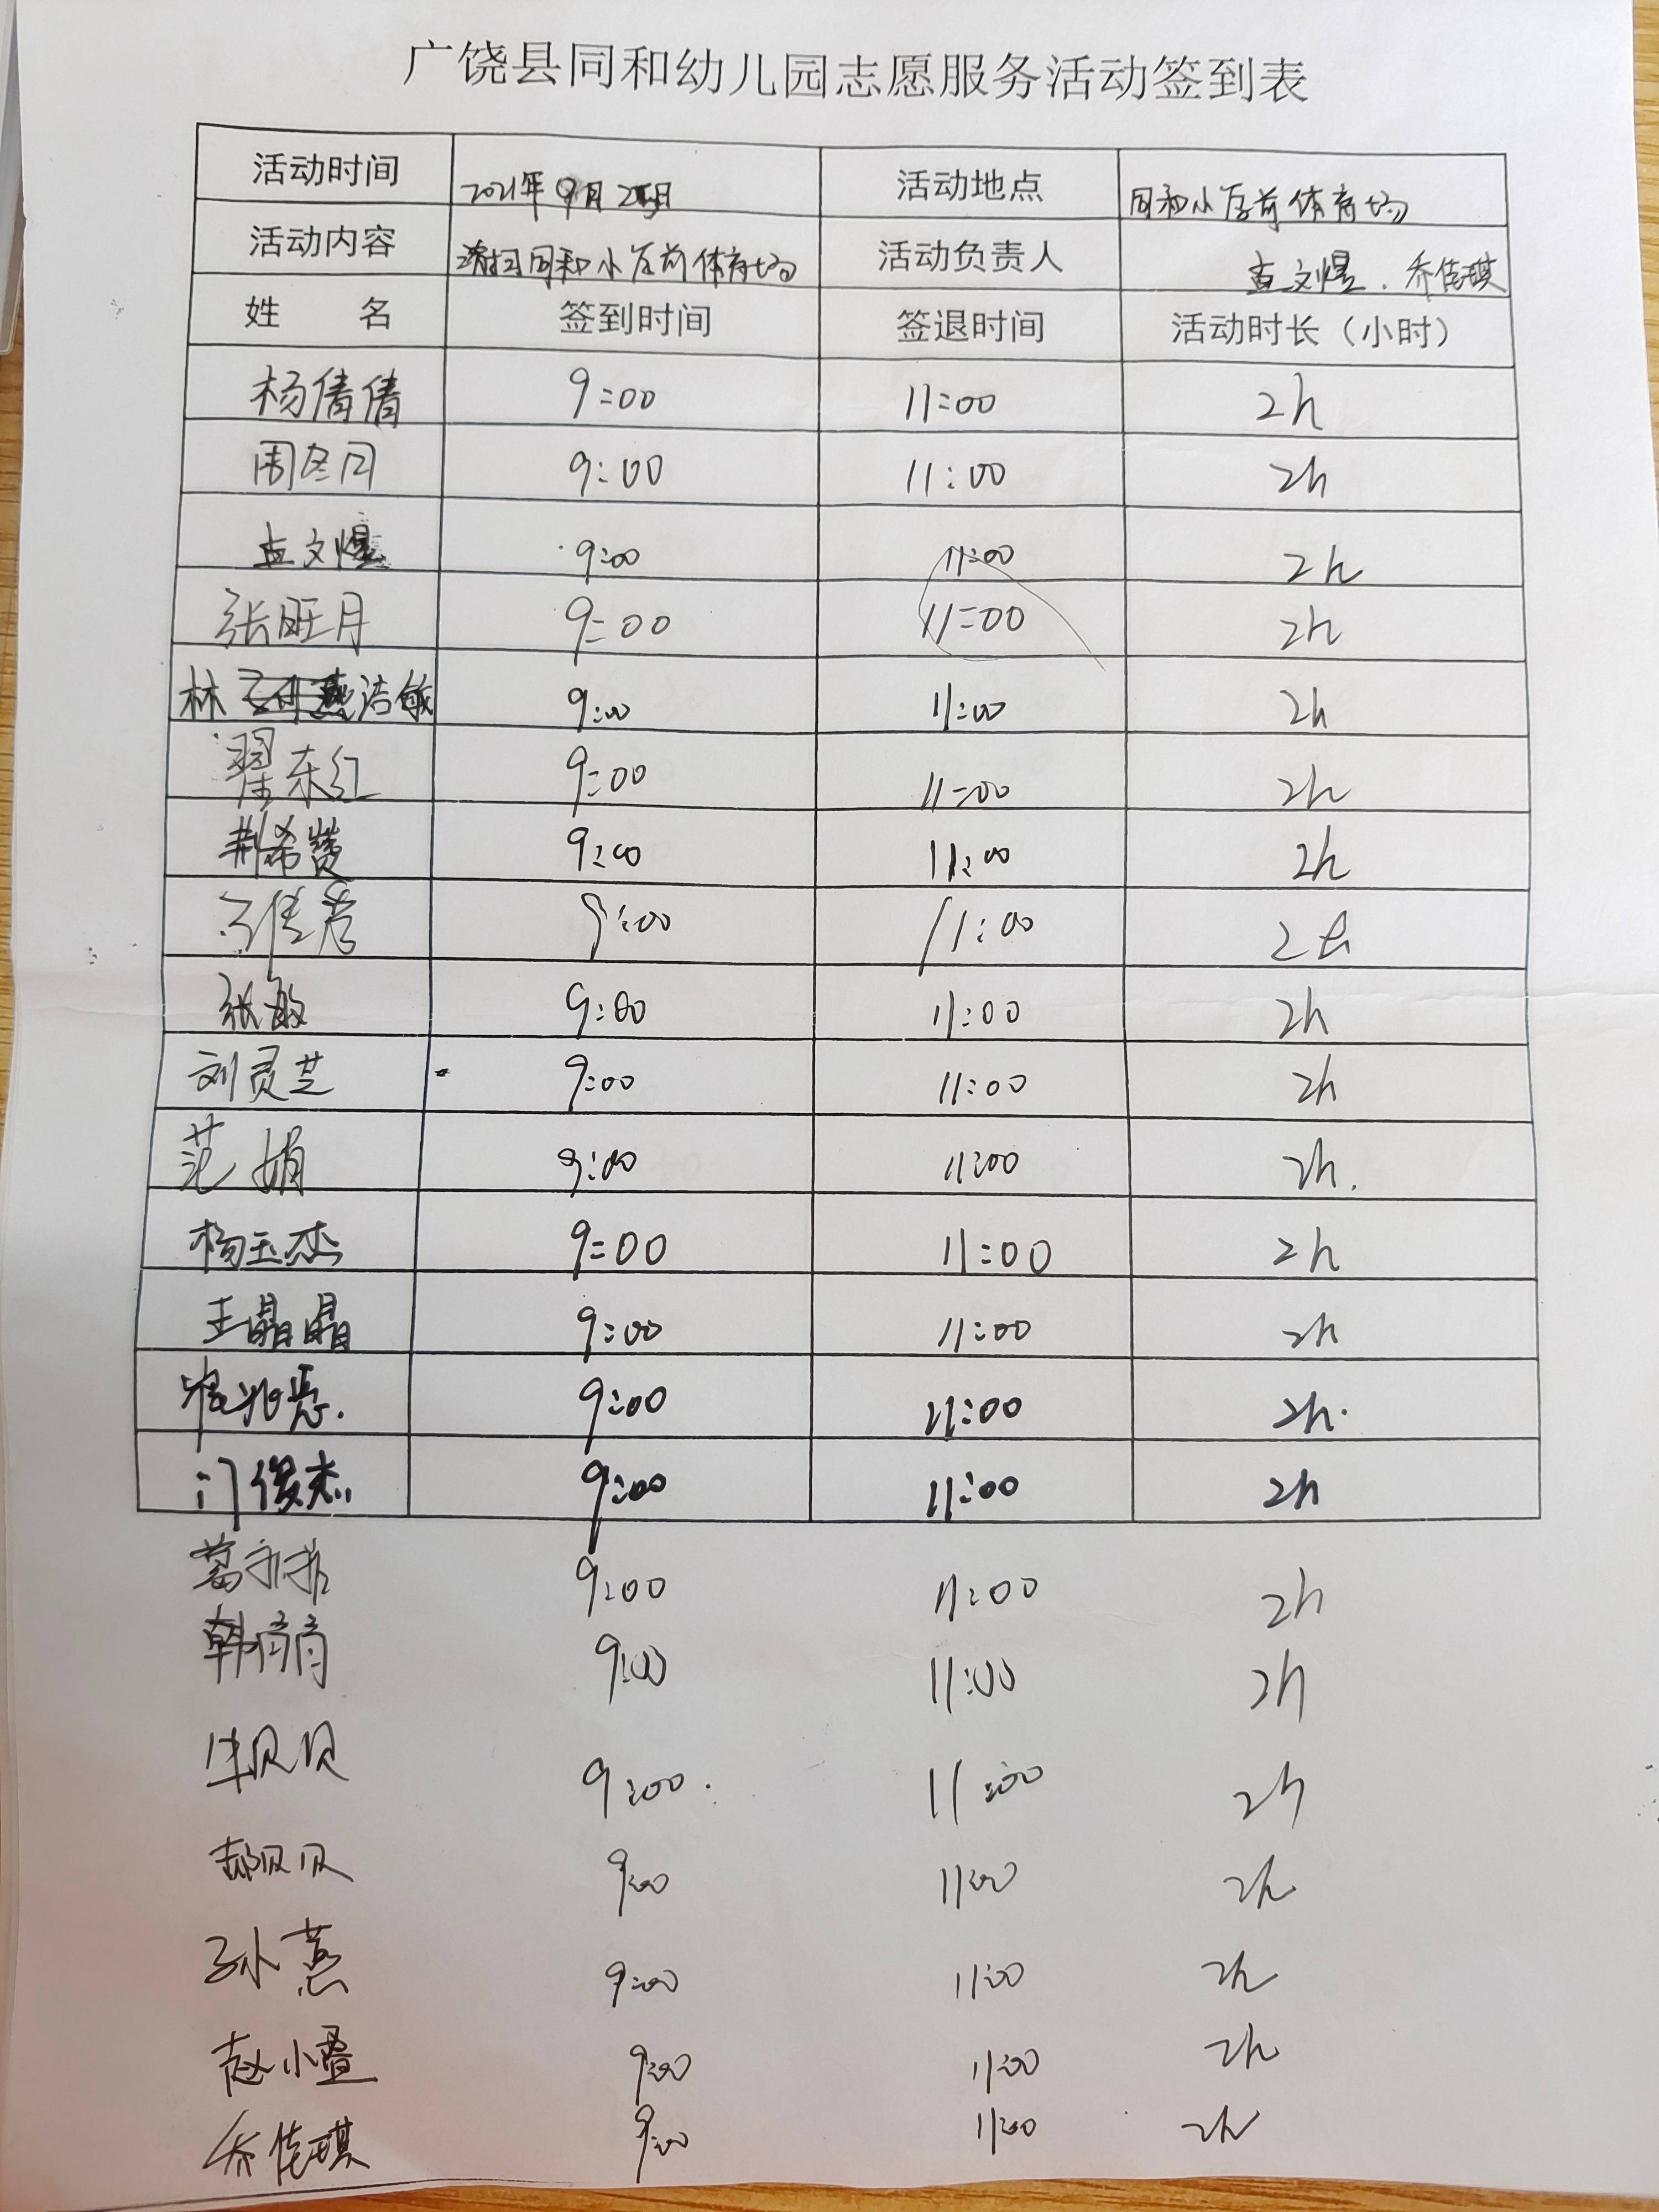 广饶县同和幼儿园志愿服务活动签到表
活动时间 2021年9月25日 活动地点 同和小区前体育场
活动内容 清扫同和小区前体育场 活动负责人 文煜、乔佳琪
姓 名 签到时间 签退时间 活动时长（小时）
杨倩倩 9:00 11:00 2h
周冬月 9:00 11:00 2h
文煜 9:00 11:00 2h
张旺月 9:00 11:00 2h
林洁敏 9:00 11:00 2h
翟东红 9:00 11:00 2h
荆希赞 9:00 11:00 2h
9:00 11:00 2h
张敏 9:00 11:00 2h
刘灵芝 9:00 11:00 2h
范娟 9:00 11:00 2h.
杨玉杰 9:00 11:00 2h
王晶晶 9:00 11:00 2h
9:00 11:00 2h.
门俊杰 9:00 11:00 2h
葛 9:00 11:00 2h
韩 9:00 11:00 2h
牟贝贝 9:00. 11:00 2h
郝贝贝 9:00 11:00 2h
孙燕 9:00 11:00 2h
赵小叠 9:00 11:00 2h
乔佳琪 9:00 11:00 2h